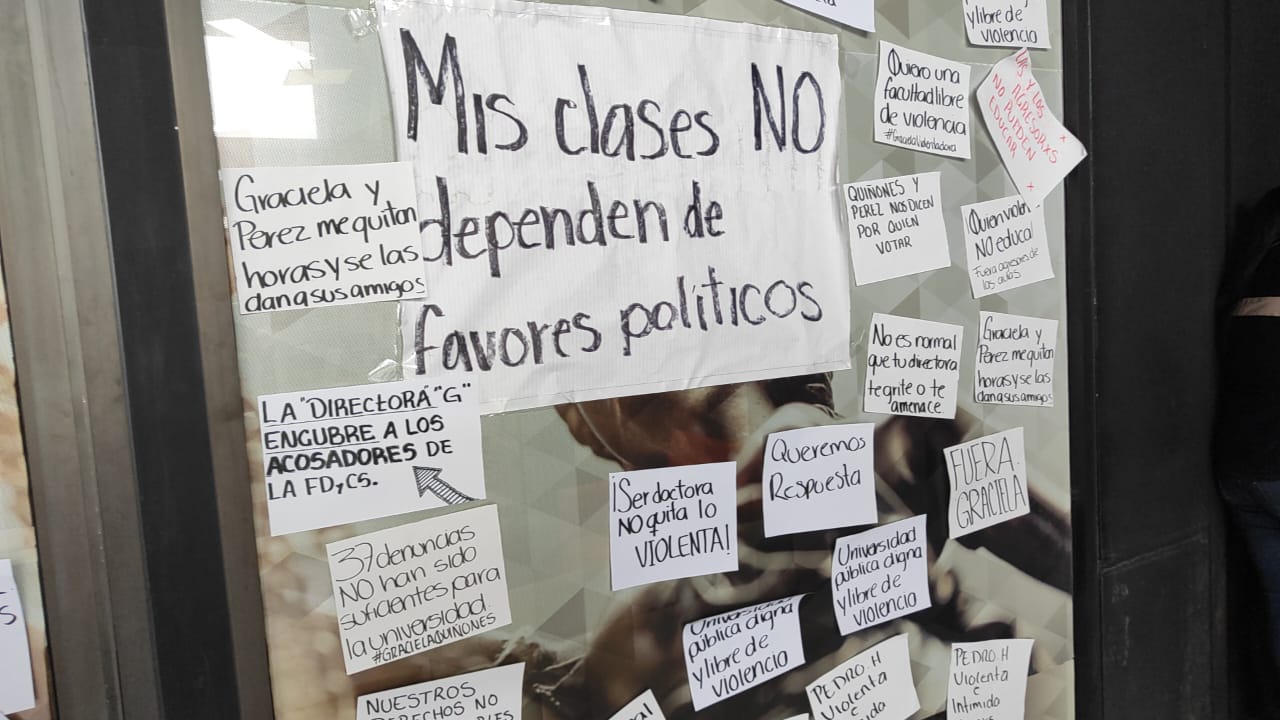 Mis clases NO
dependen de
favores políticos
Graciela y
Perez me quitan
horas y se las
dan a sus amigos
LA "DIRECTORA" "G"
ENCUBRE A LOS
ACOSADORES DE
LA FD,CS.
37 denuncias
NO han sido
suficientes para
la universidad
#GRACIELAQUIÑONES
NUESTROS
DERECHOS NO
¡Ser doctora
NO quita lo
VIOLENTA!
Queremos
Respuesta
Universidad
pública digna
y libre de
violencia
Universidad
pública digna
y libre de
violencia
y libre de
violencia
Quiero una
facultad libre
de violencia
LAS Y LOS
AGRESORXS
NO PUEDEN
EDUCAR
QUIÑONES Y
PEREZ NOS DICEN
POR QUIEN
VOTAR
Quien violenta
NO educa!
Fuera agresores de
las aulas
No es normal
que tu directora
te grite o te
amenace
Graciela y
Pérez me quitan
horas y se las
dan a sus amigos
FUERA
GRACIELA
PEDRO. H
Violenta
e
PEDRO. H
Violenta
e
Intimida